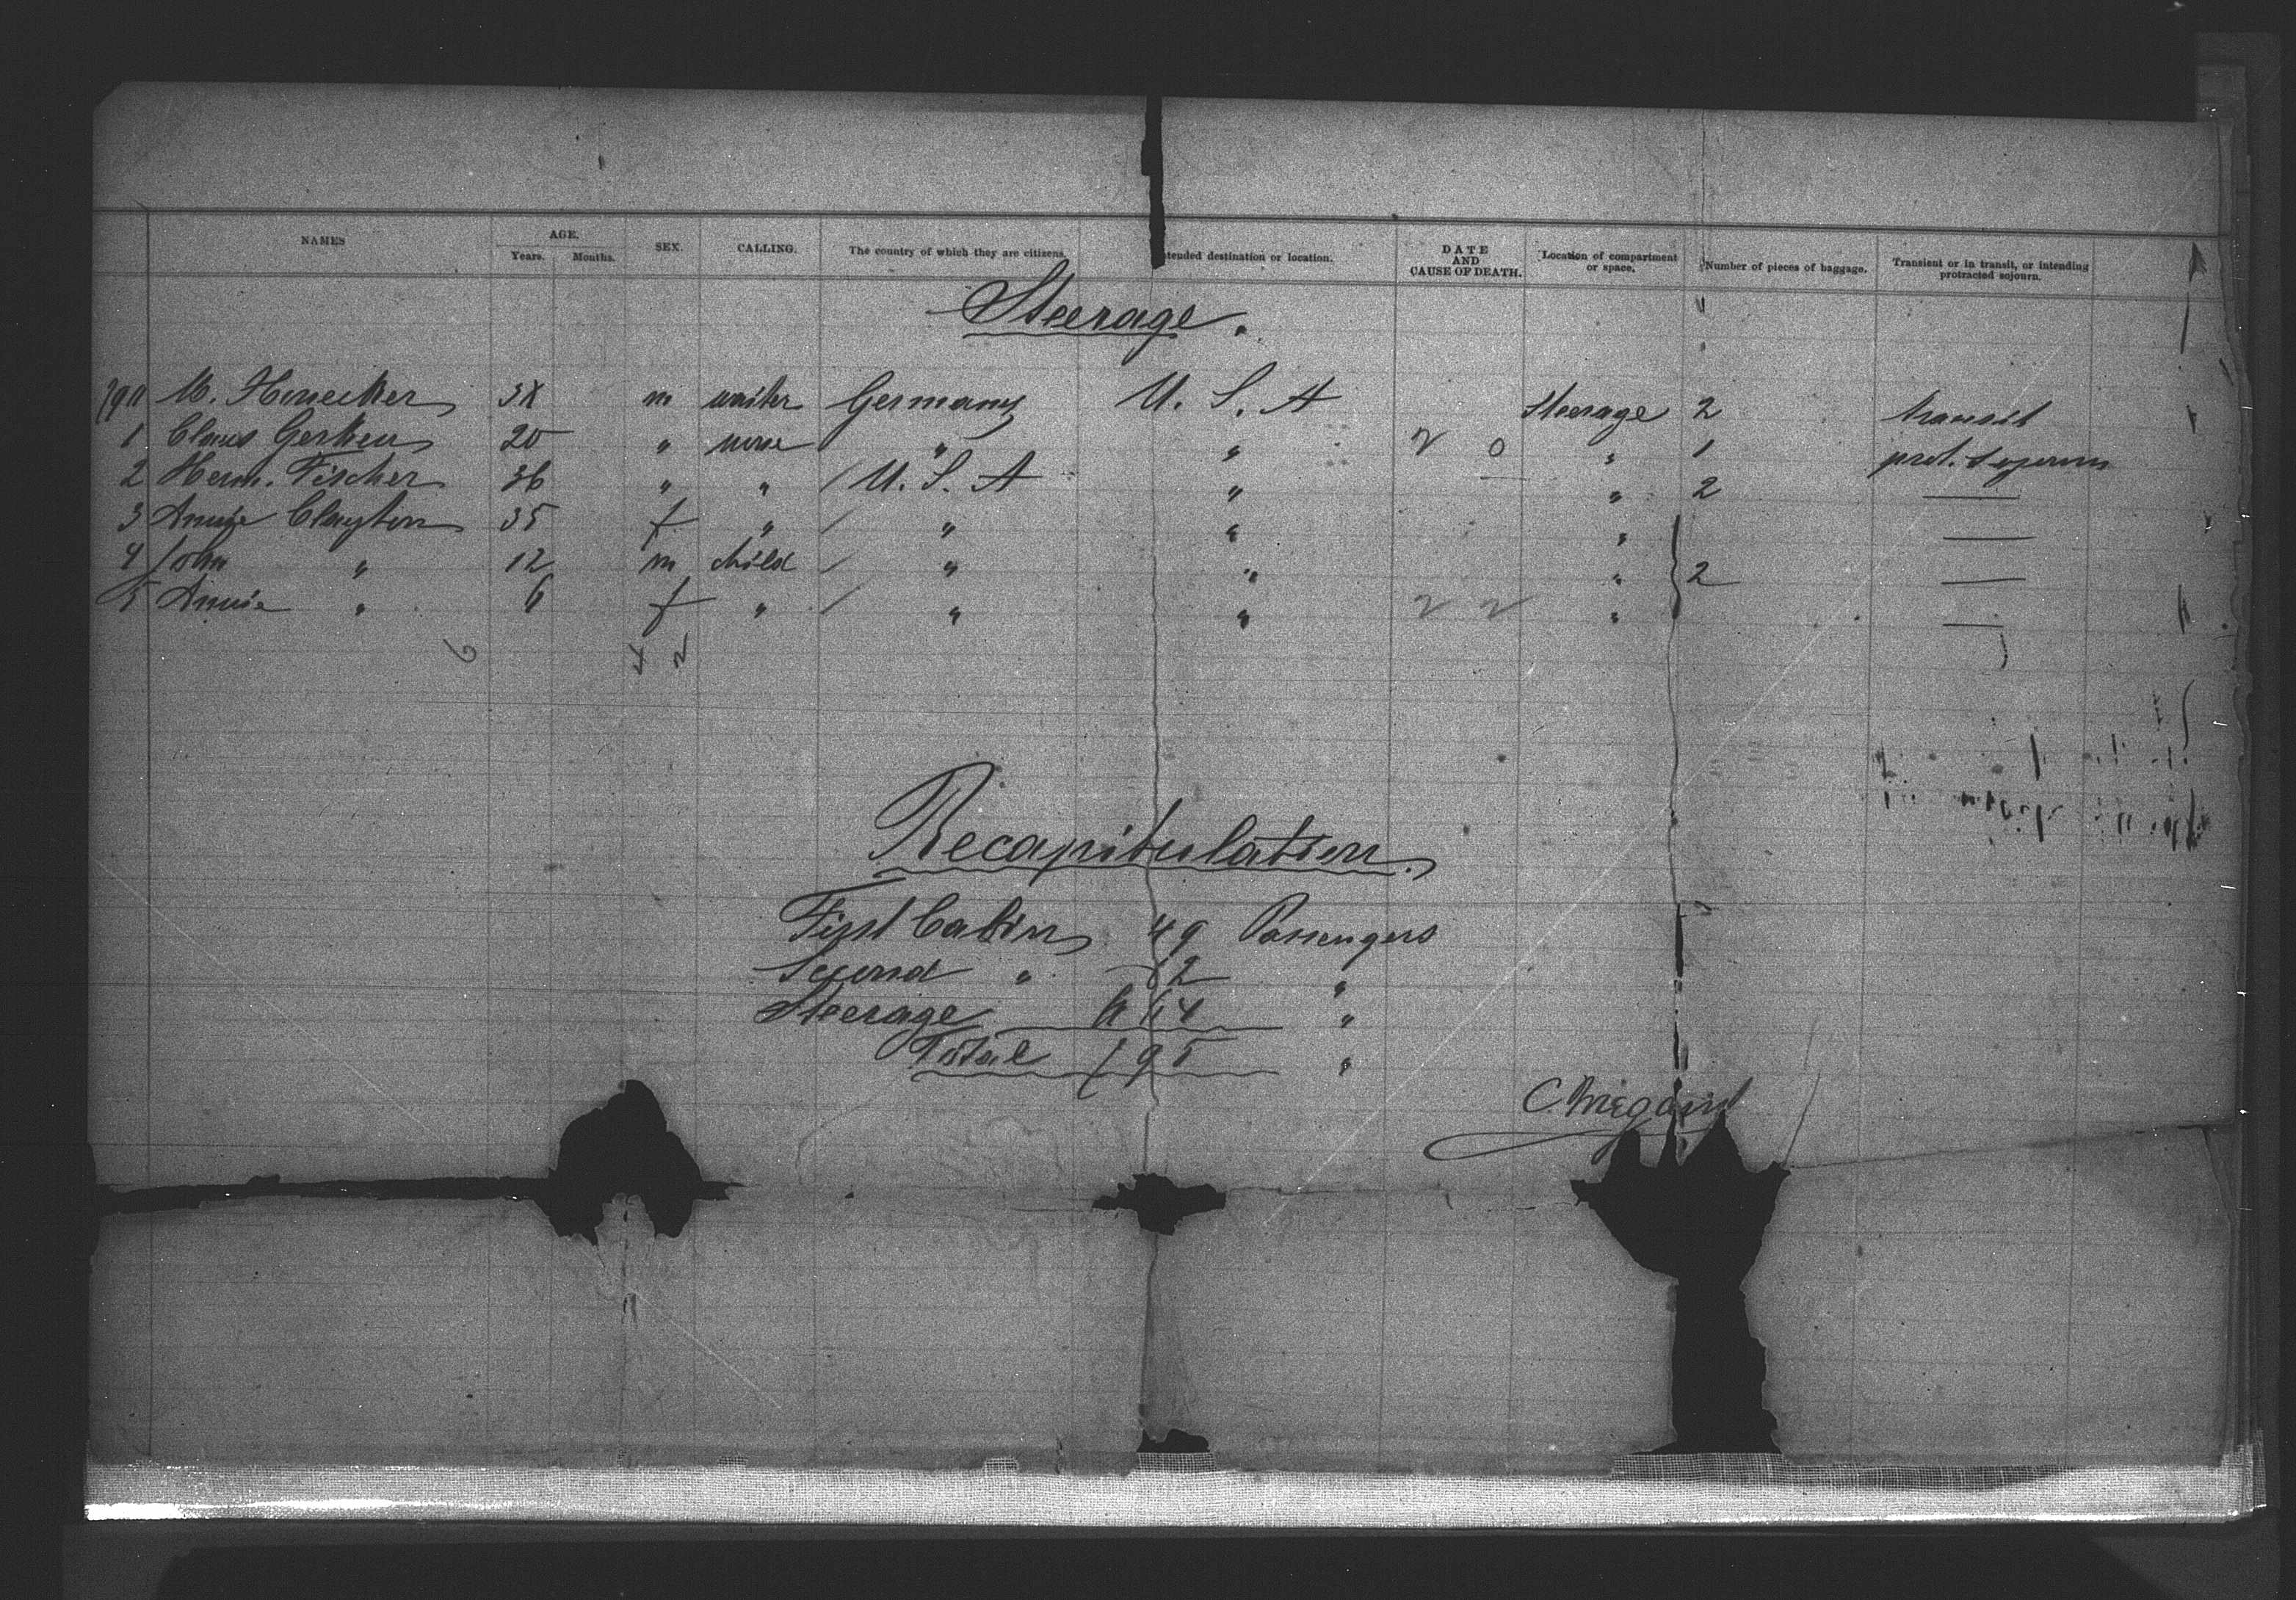 NAMES AGE. SEX. CALLING. The country of which they are citizens. ntended destination or location. DATE AND CAUSE OF DEATH. Location of compartment or space. Number of pieces of baggage. Transient or in transit, or intending protracted sojourn.
Years. Months.
Steerage.
790 M. Honecker m waiter Germany U. S. A Steerage 2 transit
1 Claus Gerken 20 " none " " 2 0 " 1 prot. sojourn
2 Herm. Fischer 36 " " / U. S. A " " 2 —
3 Annie Clayton 35 f " / " " " —
4 John " 12 m child / " " " 2 —
5 Annie " 6 f " / " " 2 2 " —
6 4 2
Recapitulation.
First Cabin 49 Passengers
Second " 82 "
Steerage 664 "
Total 795 "